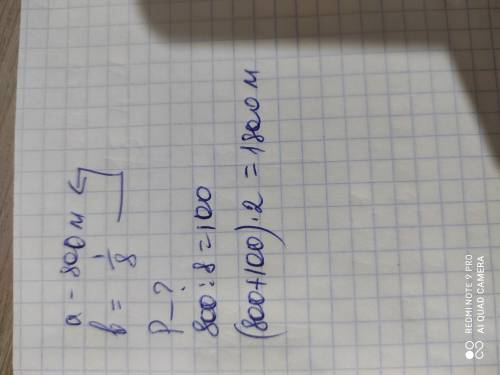 a - 800 м
b = 1/8
P - ?
800 : 8 = 100
(800+100)·2 = 1800 м
REDMI NOTE 9 PRO
AI QUAD CAMERA